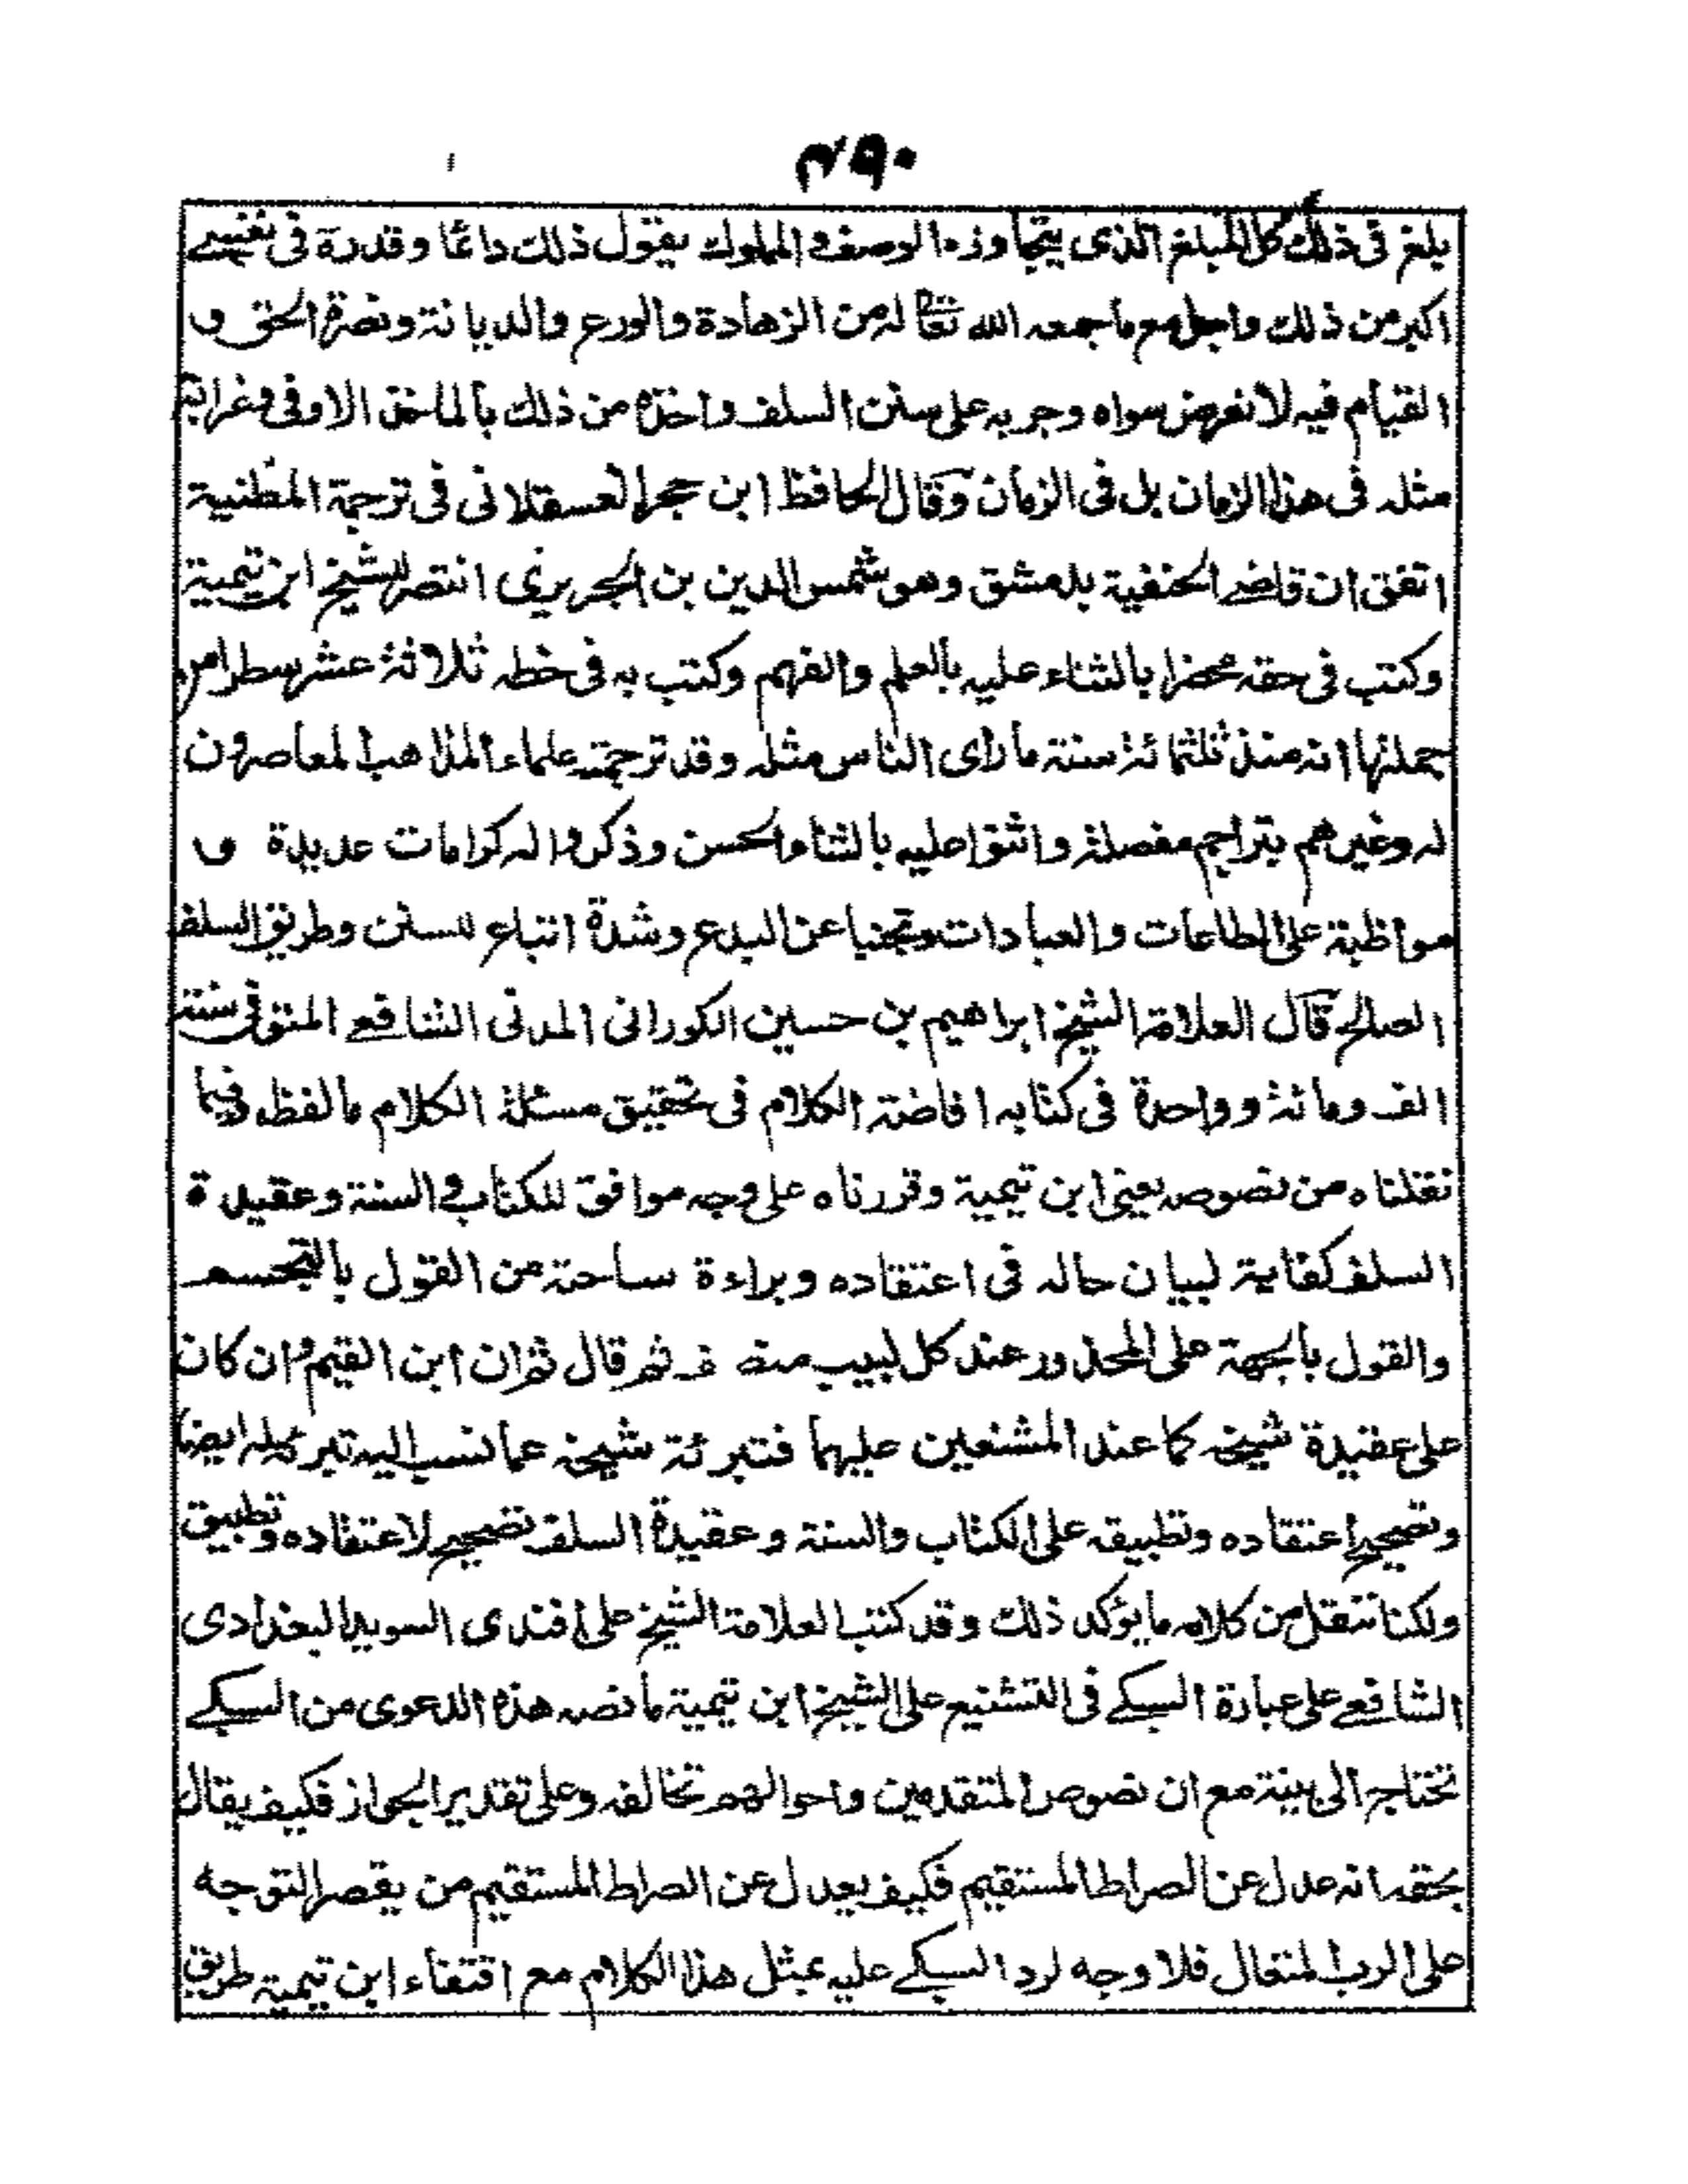 ٤٩٠
بلغ فى ذلك كل المبلغ الذى يتجاوزه الوصف والمملوك يقول ذلك دائما وقدره فى نفسى
اكبر من ذلك واجل مع ما جمعه الله تعالى له من الزهادة والورع والديانة ونصرة الحق و
القيام فيه لا لغرض سواه وجريه على سنن السلف واخذه من ذلك بالماخذ الاوفى وغرابة
مثله فى هذا الزمان بل فى الزمان وقال الحافظ ابن حجر العسقلانى فى ترجمة المطنبية
اتفق ان قاضى الحنفية بدمشق وهو شمس الدين بن الجريرى انتصر للشيخ ابن تيمية
وكتب فى حقه محضرا بالثناء عليه بالعلم والفهم وكتب به فى خطه ثلاثة عشر سطرا من
جملتها انه منذ ثلثمائة سنة ما راى الناس مثله وقد ترجمته علماء المذاهب المعاصرون
له وغيرهم بتراجم مفصلة واثنوا عليه بالثناء الحسن وذكروا له كرامات عديدة و
مواظبة على الطاعات والعبادات وتجنبا عن البدع وشدة اتباع للسنن وطريق السلف
الصالح قال العلامة الشيخ ابراهيم بن حسين الكورانى المدنى الشافعى المتوفى سنة
الف ومائة وواحدة فى كتابه افاضة الكلام فى تحقيق مسئلة الكلام ما لفظه وفيما
نقلناه من نصوصه يعنى ابن تيمية وقررناه على وجه موافق للكتاب والسنة وعقيدة
السلف كفاية لبيان حاله فى اعتقاده وبراءة ساحته من القول بالتجسم
والقول بالجهة على المحذور عند كل لبيب منصف ثم قال ثم ان ابن القيم وان كان
على عقيدة شيخه كما عند المشنعين عليهما فتبرئة شيخه عما نسب اليه تبرئة له ايضا
وتصحيح اعتقاده وتطبيقه على الكتاب والسنة وعقيدة السلف تصحيح لاعتقاده وتطبيق
ولكنا ننقل من كلامه ما يؤكد ذلك وقد كتب العلامة الشيخ على افندى السويدا البغدادى
الشافعى على عبارة السبكى فى التشنيع على الشيخ ابن تيمية ما نصه هذه الدعوى من السبكى
تحتاج الى بينة مع ان نصوص المتقدمين واحوالهم تخالفه وعلى تقدير الجواز فكيف يقال
بحقه انه عدل عن الصراط المستقيم فكيف يعدل عن الصراط المستقيم من يقصر التوجه
على الرب المتعال فلا وجه لرد السبكى عليه بمثل هذا الكلام مع اقتفاء ابن تيمية طريق